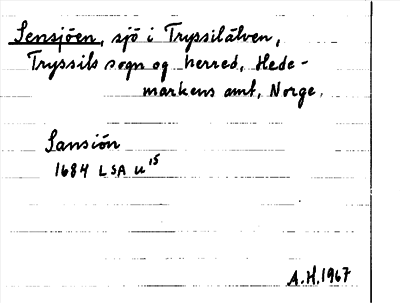 Sensjöen, sjö i Tryssilälven,
Tryssils sogn og herred, Hede-
markens amt, Norge.
Sansión
1684 LSA U 15
A.H. 1967